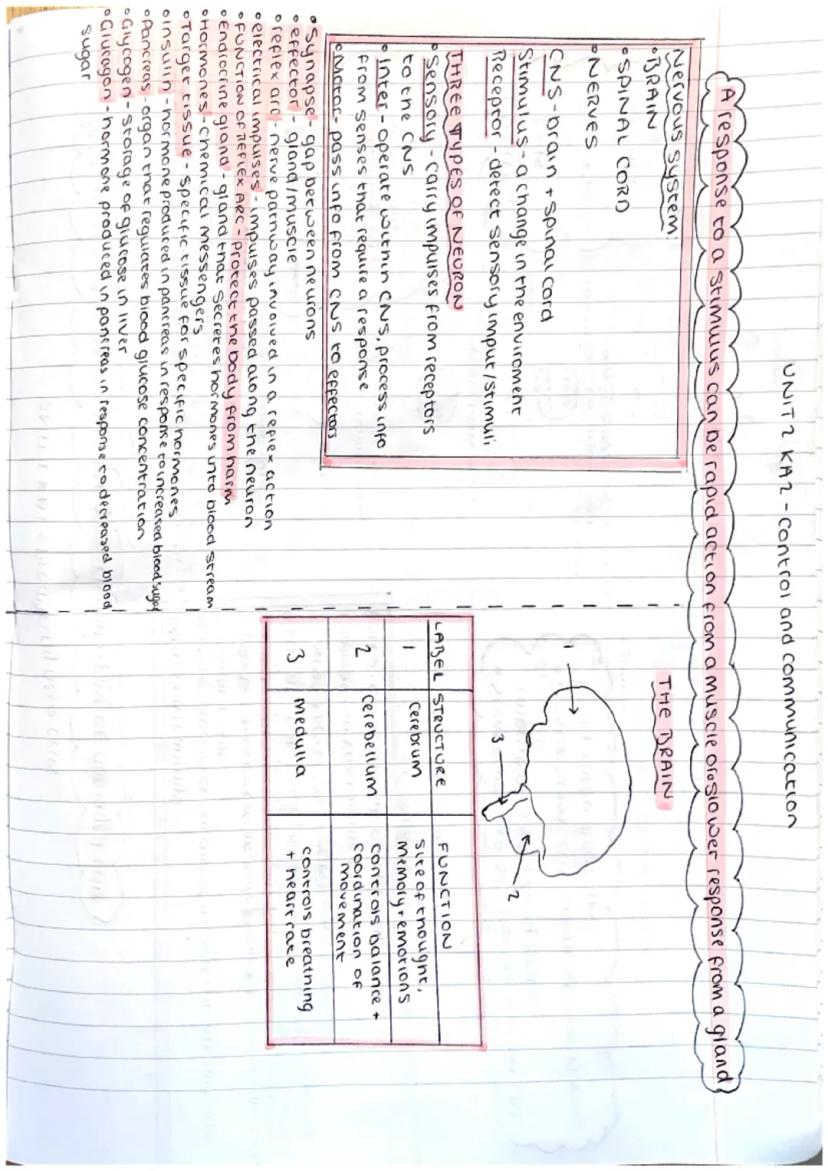 UNIT 2 KA2 - Control and communication
A response to a stimulus can be rapid action from a muscle or slower response from a gland
Nervous System:
•BRAIN
•SPINAL CORD
•NERVES
CNS - brain + spinal cord
Stimulus - a change in the enviroment
Receptor - detect sensory input/stimuli
THREE TYPES OF NEURON
•Sensory - carry impulses from receptors
to the CNS
•Inter - operate within CNS, process info
from senses that require a response
•Motor - pass info from CNS to effectors
•Synapse - gap between neurons
•effector - gland/muscle
•reflex arc - nerve pathway involved in a reflex action
•electrical impulses - impulses passed along the neuron
•FUNCTION OF REFLEX ARC - protect the body from harm
•Endocrine gland - gland that secretes hormones into blood stream
•Hormones - chemical messengers
•Target tissue - specific tissue for specific hormones
•Insulin - hormone produced in pancreas in response to increased blood sugar
•Pancreas - organ that regulates blood glucose concentration
•Glycogen - storage of glucose in liver
•Glucagon - hormone produced in pancreas in response to decreased blood
sugar
THE BRAIN
1
3
2
LABEL STRUCTURE FUNCTION
1 Cerebrum Site of thought,
memory + emotions
2 Cerebellum Controls balance +
coordination of
movement
3 Medulla Controls breathing
+ heart rate